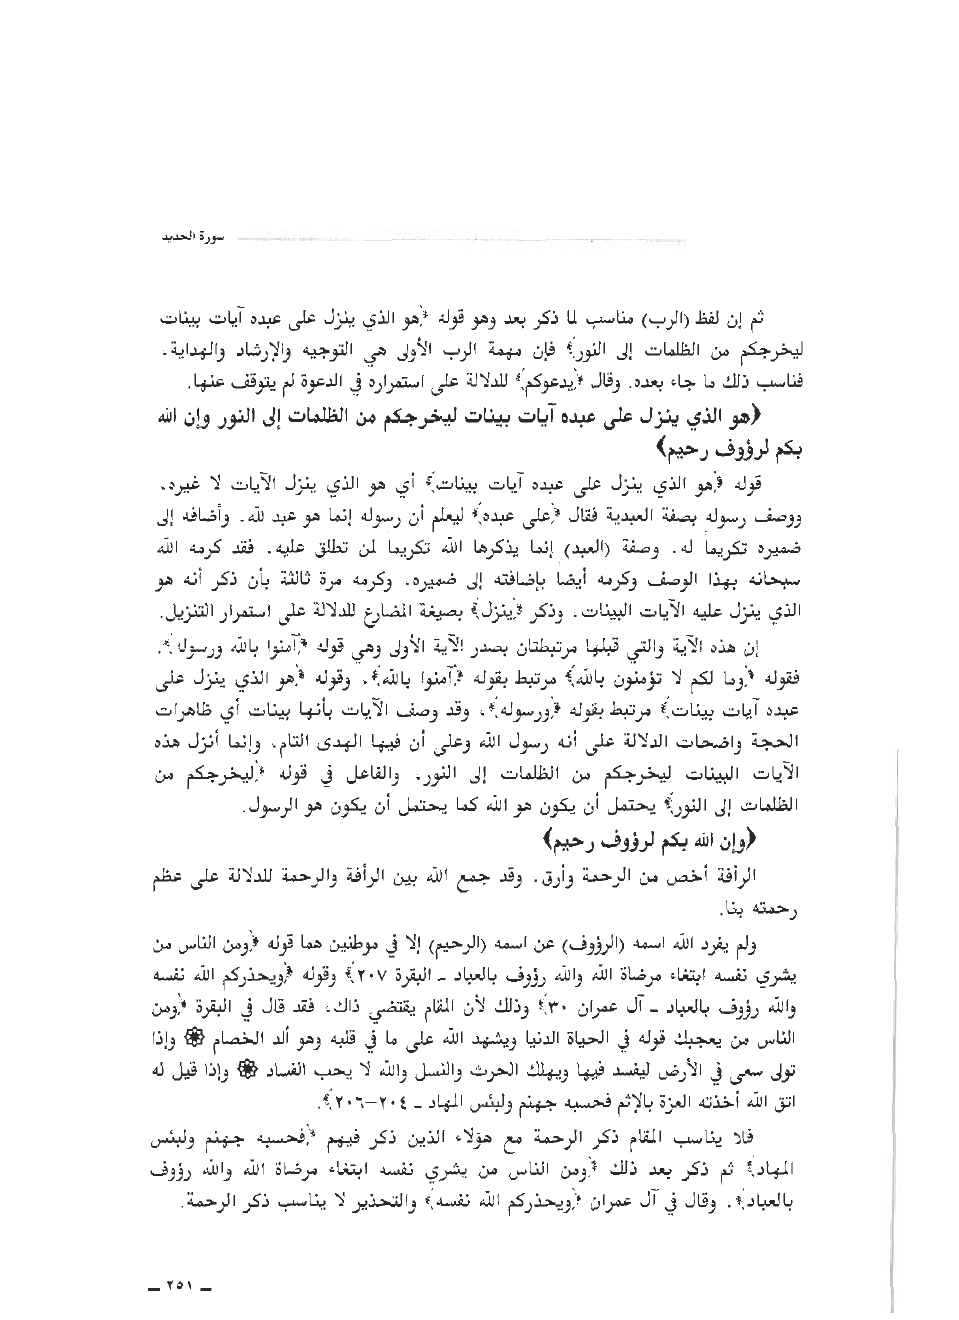 سورة الحديد
ثم إن لفظ (الرب) مناسب لما ذكر بعد وهو قوله ﴿هو الذي ينزل على عبده آيات بينات
ليخرجكم من الظلمات إلى النور﴾ فإن مهمة الرب الأولى هي التوجيه والإرشاد والهداية،
فناسب ذلك ما جاء بعده. وقال ﴿يدعوكم﴾ للدلالة على استمراره في الدعوة لم يتوقف عنها.
﴿هو الذي ينزل على عبده آيات بينات ليخرجكم من الظلمات إلى النور وإن الله
بكم لرؤوف رحيم﴾
قوله ﴿هو الذي ينزل على عبده آيات بينات﴾ أي هو الذي ينزل الآيات لا غيره،
ووصف رسوله بصفة العبدية فقال ﴿على عبده﴾ ليعلم أن رسوله إنما هو عبد لله. وأضافه إلى
ضميره تكريماً له. وصفة (العبد) إنما يذكرها الله تكريما لمن تطلق عليه. فقد كرمه الله
سبحانه بهذا الوصف وكرمه أيضا بإضافته إلى ضميره. وكرمه مرة ثالثة بأن ذكر أنه هو
الذي ينزل عليه الآيات البينات. وذكر ﴿ينزل﴾ بصيغة المضارع للدلالة على استمرار التنزيل.
إن هذه الآية والتي قبلها مرتبطتان بصدر الآية الأولى وهي قوله ﴿آمنوا بالله ورسوله﴾.
فقوله ﴿وما لكم لا تؤمنون بالله﴾ مرتبط بقوله ﴿آمنوا بالله﴾، وقوله ﴿هو الذي ينزل على
عبده آيات بينات﴾ مرتبط بقوله ﴿ورسوله﴾، وقد وصف الآيات بأنها بينات أي ظاهرات
الحجة واضحات الدلالة على أنه رسول الله وعلى أن فيها الهدى التام، وإنما أنزل هذه
الآيات البينات ليخرجكم من الظلمات إلى النور، والفاعل في قوله ﴿ليخرجكم من
الظلمات إلى النور﴾ يحتمل أن يكون هو الله كما يحتمل أن يكون هو الرسول.
﴿وإن الله بكم لرؤوف رحيم﴾
الرأفة أخص من الرحمة وأرق. وقد جمع الله بين الرأفة والرحمة للدلالة على عظم
رحمته بنا.
ولم يفرد الله اسمه (الرؤوف) عن اسمه (الرحيم) إلا في موطنين هما قوله ﴿ومن الناس من
يشري نفسه ابتغاء مرضاة الله والله رؤوف بالعباد ـ البقرة ٢٠٧﴾ وقوله ﴿ويحذركم الله نفسه
والله رؤوف بالعباد ـ آل عمران ٣٠﴾ وذلك لأن المقام يقتضي ذاك، فقد قال في البقرة ﴿ومن
الناس من يعجبك قوله في الحياة الدنيا ويشهد الله على ما في قلبه وهو ألد الخصام ۞ وإذا
تولى سعى في الأرض ليفسد فيها ويهلك الحرث والنسل والله لا يحب الفساد ۞ وإذا قيل له
اتق الله أخذته العزة بالإثم فحسبه جهنم ولبئس المهاد ـ ٢٠٤-٢٠٦﴾.
فلا يناسب المقام ذكر الرحمة مع هؤلاء الذين ذكر فيهم ﴿فحسبه جهنم ولبئس
المهاد﴾ ثم ذكر بعد ذلك ﴿ومن الناس من يشري نفسه ابتغاء مرضاة الله والله رؤوف
بالعباد﴾. وقال في آل عمران ﴿ويحذركم الله نفسه﴾ والتحذير لا يناسب ذكر الرحمة.
ـ ٢٥١ ـ